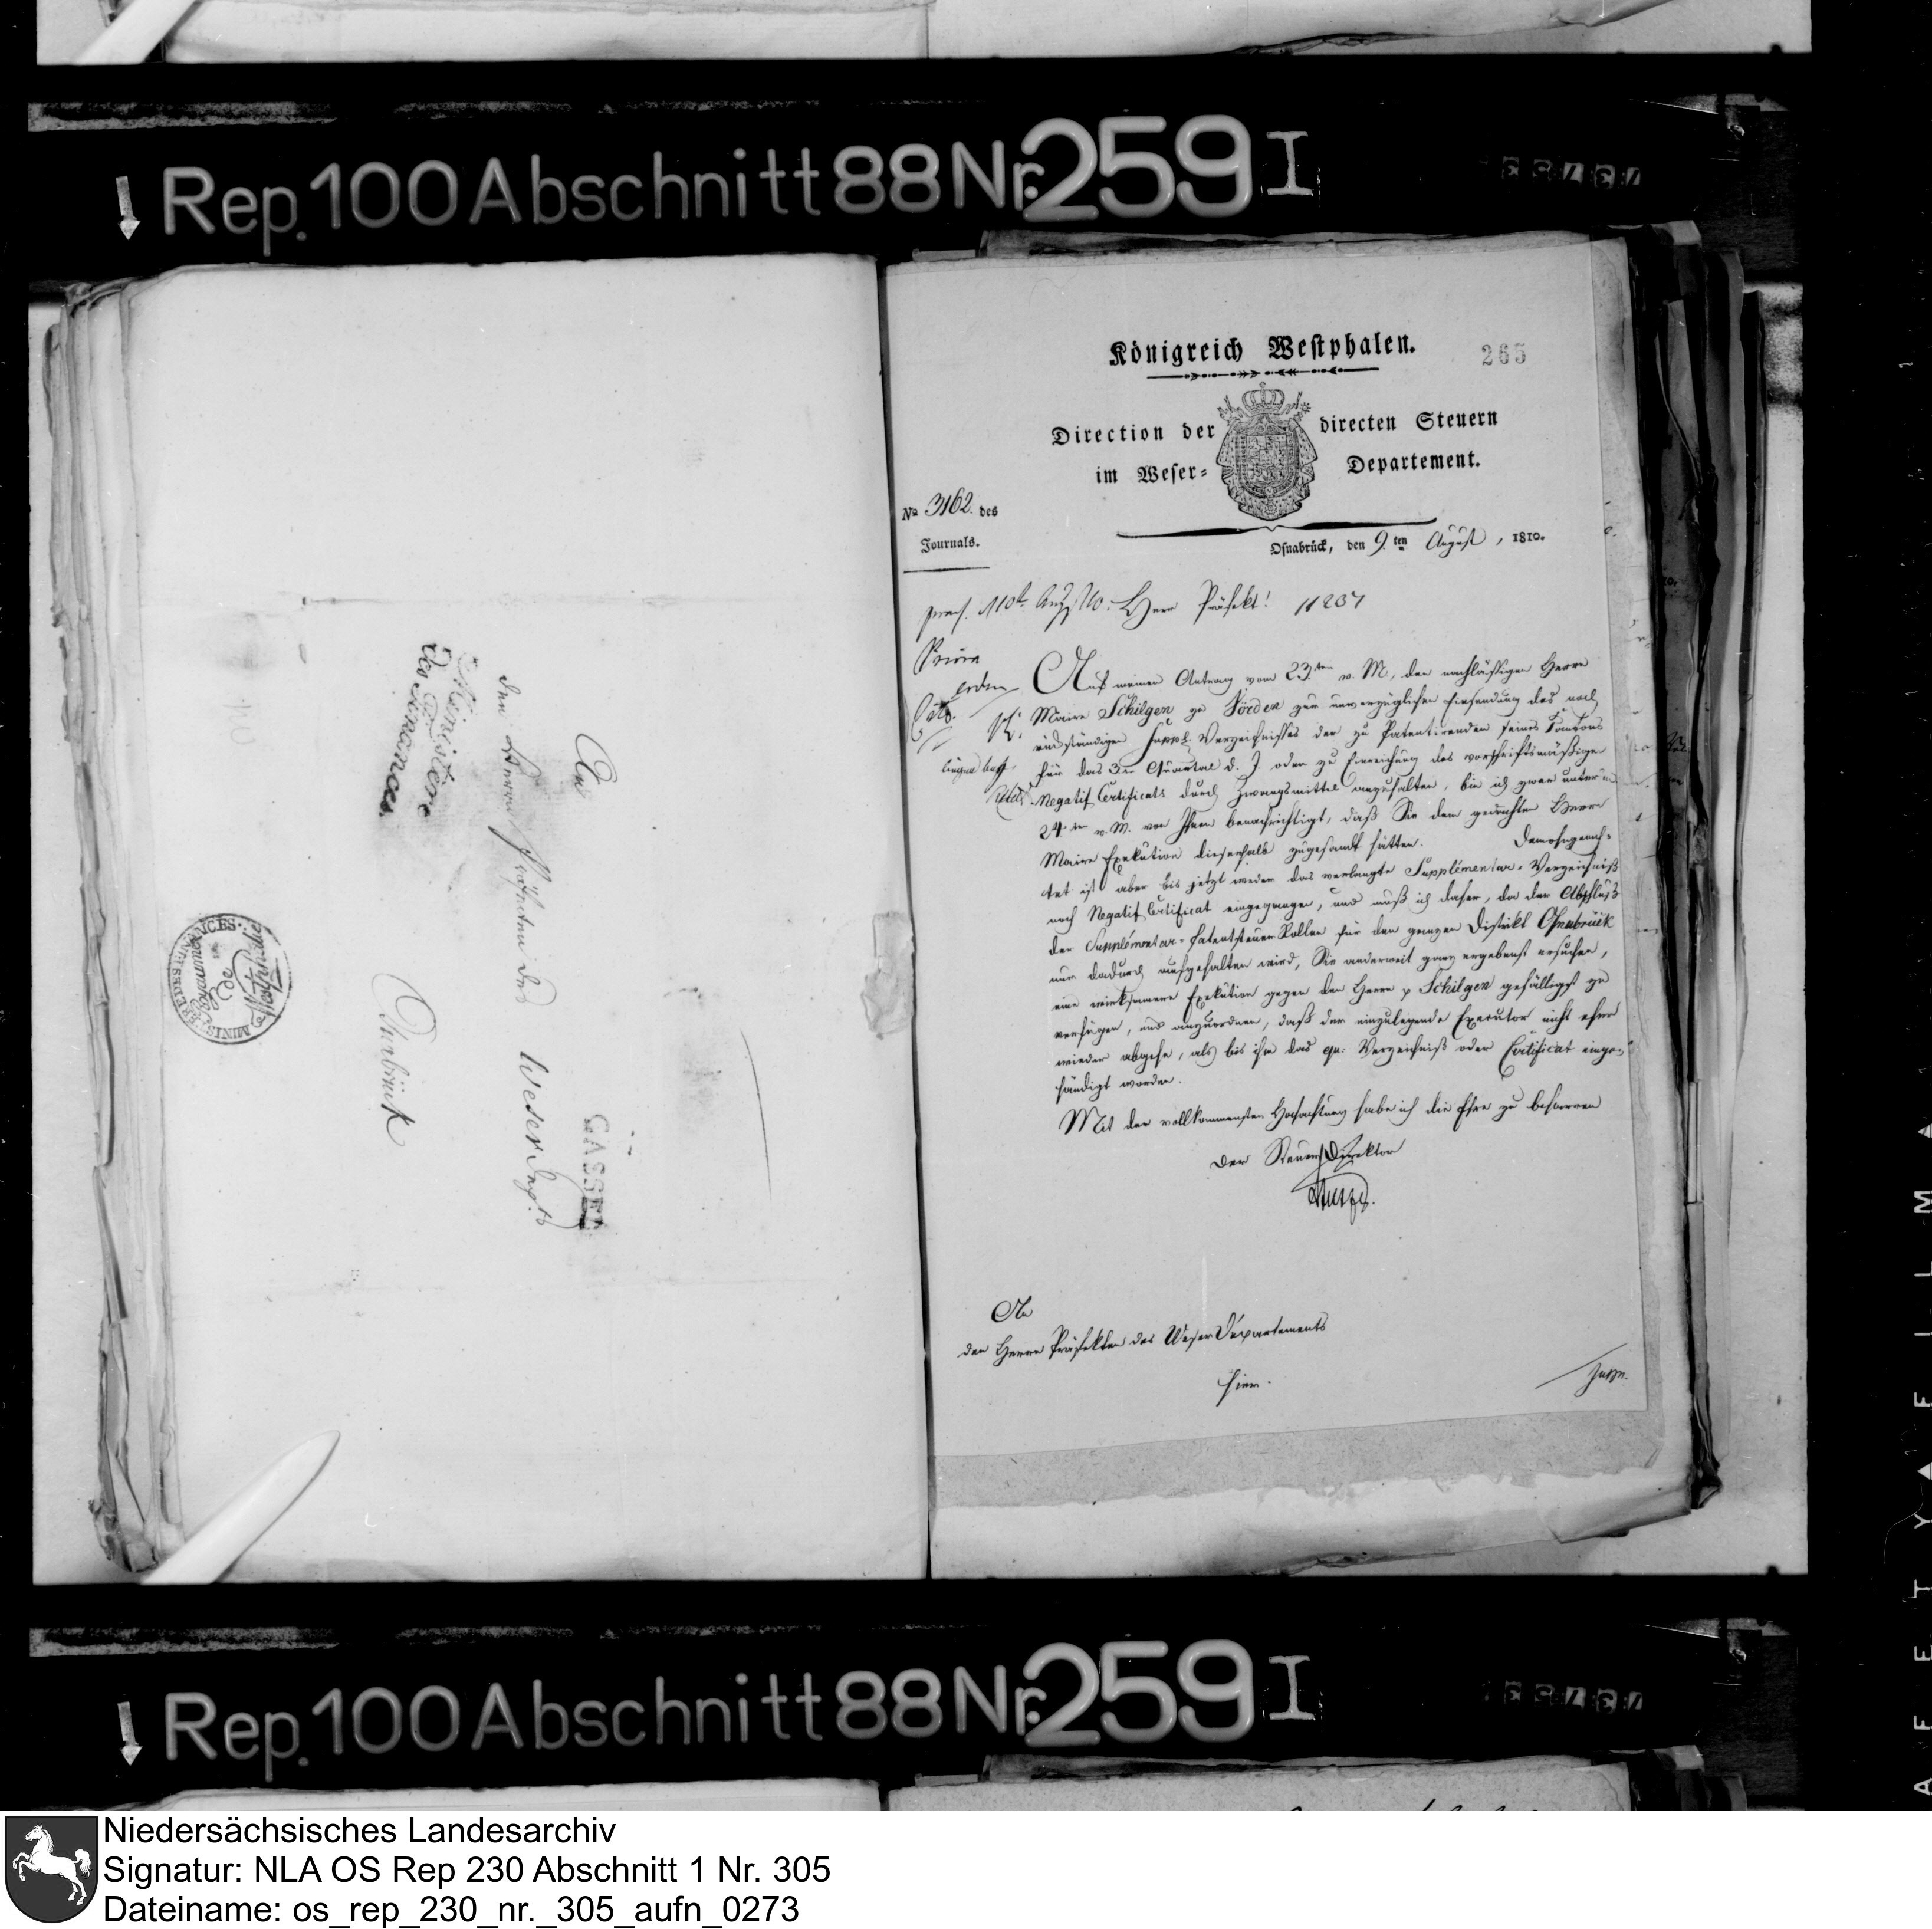 Rep. 100 Abschnitt 88 Nr. 259 I
Ministère
des Finances
An
den Herrn Präfecten des Weser Dep.ts
Osnabrück
CASSEL
MINISTERE DES FINANCES
Royaume
de
Westphalie
Königreich Westphalen.
265
Direction der directen Steuern
im Weser- Departement.
No 3162. des
Journals.
Osnabrück, den 9.ten August, 1810.
praes. 10t Aug. 10.
Herr Präfekt! 11237
Auf meinen Antrag vom 23.ten v. M., den nachlässigen Herrn
Maire Schilgen zu Vörden zur unverzüglichen Einsendung des noch
rückständigen Suppl. Verzeichnisses der zu Patentirenden seines Cantons
für das 3te Quartal d. J. oder zu Einreichung des vorschriftsmäßigen
Negatif Certificats durch Zwangsmittel anzuhalten, bin ich zwar unterm
24ten v. M. von Ihnen benachrichtigt, daß Sie dem gedachten Herrn
Maire Exekution dieserhalb zugesandt hätten. Demohngeach-
tet ist aber bis jetzt weder das verlangte Supplémentar-Verzeichniß
noch Negatif Certificat eingegangen, und muß ich daher, da der Abschluß
der Supplémentar-Patentsteuer Rollen für den ganzen Distrikt Osnabrück
nur dadurch aufgehalten wird, Sie anderweit ganz ergebenst ersuchen,
eine wirksamere Exekution gegen den Herrn p Schilgen gefälligst zu
verfügen, und anzuordnen, daß der einzulegende Executor nicht eher
wieder abgehe, als bis ihm das qu: Verzeichniß oder Certificat einge-
händigt worden.
Mit der vollkommensten Hochachtung habe ich die Ehre zu beharren
Der Steuer Direktor
An
den Herrn Präfekten des Weser Departements
hier.
Rep. 100 Abschnitt 88 Nr. 259 I
Niedersächsisches Landesarchiv
Signatur: NLA OS Rep 230 Abschnitt 1 Nr. 305
Dateiname: os_rep_230_nr._305_aufn_0273